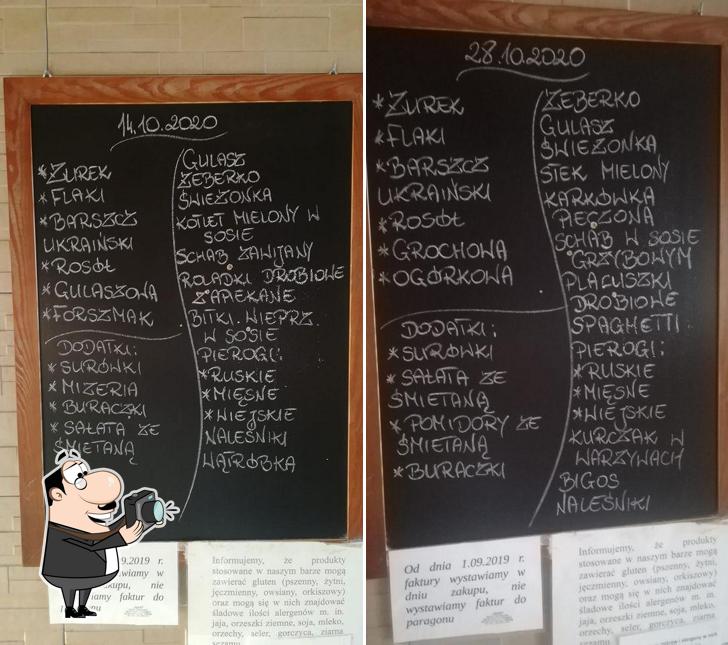 14.10.2020
*ŻUREK
*FLAKI
*BARSZCZ
UKRAIŃSKI
*ROSÓŁ
*GULASZOWA
*FORSZMAK
DODATKI:
*SURÓWKI
*MIZERIA
*BURACZKI
*SAŁATA ZE
ŚMIETANĄ
GULASZ
ŻEBERKO
ŚWIEŻONKA
KOTLET MIELONY W
SOSIE
SCHAB ZAWIJANY
ROLADKI DROBIOWE
ZAPIEKANE
BITKI WIEPRZ.
W SOSIE
PIEROGI:
*RUSKIE
*MIĘSNE
*WIEJSKIE
NALEŚNIKI
WĄTRÓBKA
9.2019 r.
wiamy w
zakupu, nie
wiamy faktur do
Informujemy, że produkty
stosowane w naszym barze mogą
zawierać gluten (pszenny, żytni,
jęczmienny, owsiany, orkiszowy)
oraz mogą się w nich znajdować
śladowe ilości alergenów m. in.
jaja, orzeszki ziemne, soja, mleko,
orzechy, seler, gorczyca, ziarna
sezamu
28.10.2020
*ŻUREK
*FLAKI
*BARSZCZ
UKRAIŃSKI
*ROSÓŁ
*GROCHOWA
*OGÓRKOWA
DODATKI:
*SURÓWKI
*SAŁATA ZE
ŚMIETANĄ
*POMIDORY ZE
ŚMIETANĄ
*BURACZKI
ŻEBERKO
GULASZ
ŚWIEŻONKA
STEK MIELONY
KARKÓWKA
PIECZONA
SCHAB W SOSIE
GRZYBOWYM
PLACUSZKI
DROBIOWE
SPAGHETTI
PIEROGI:
*RUSKIE
*MIĘSNE
*WIEJSKIE
KURCZAK W
WARZYWACH
BIGOS
NALEŚNIKI
Od dnia 1.09.2019 r.
faktury wystawiamy w
dniu zakupu, nie
wystawiamy faktur do
paragonu
Informujemy, że produkty
stosowane w naszym barze mogą
zawierać gluten (pszenny, żytni,
jęczmienny, owsiany, orkiszowy)
oraz mogą się w nich znajdować
śladowe ilości alergenów m. in.
jaja, orzeszki ziemne, soja, mleko,
orzechy, seler, gorczyca, ziarna